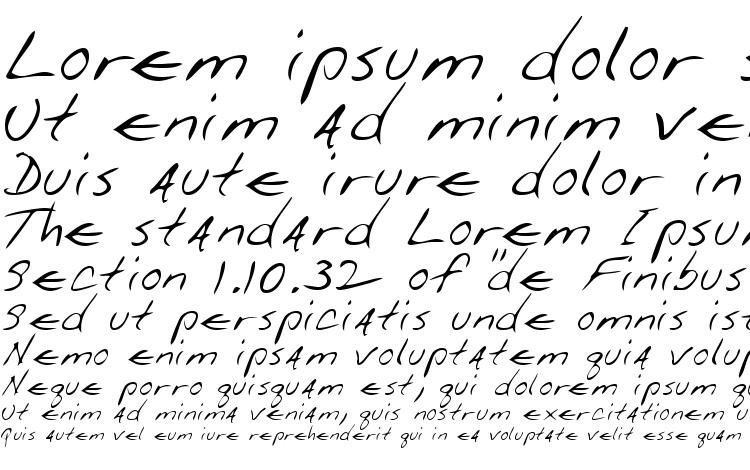 Lorem ipsum dolor s
Ut enim ad minim ve
Duis aute irure dolor in
The standard Lorem Ipsu
Section 1.10.32 of "de Finibus
Sed ut perspiciatis unde omnis ist
Nemo enim ipsam voluptatem quia volup
Neque porro quisquam est, qui dolorem ipsum qu
Ut enim ad minima veniam, quis nostrum exercitationem u
Quis autem vel eum iure reprehenderit qui in ea voluptate velit esse quam